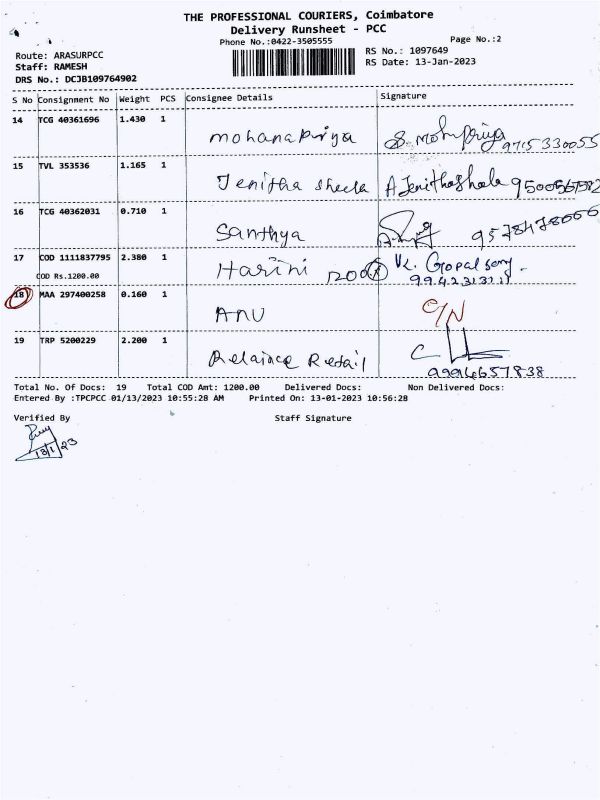 THE PROFESSIONAL COURIERS, Coimbatore
Delivery Runsheet - PCC
Phone No.:0422-3505555
Page No.:2
Route: ARASURPCC
RS No.: 1097649
Staff: RAMESH
RS Date: 13-Jan-2023
DRS No.: DCJB109764902
S No Consignment No Weight PCS Consignee Details Signature
14 TCG 40361696 1.430 1
mohanapriya S. mohnpriya
9715330055
15 TVL 353536 1.165 1
Jenitha sheela A Jenithasheela
16 TCG 40362031 0.710 1
Santhya
17 COD 1111837795 2.380 1
COD Rs.1200.00
Harini 1200 VK. Gopalsamy.
18 MAA 297400258 0.160 1
ANU C/N
19 TRP 5200229 2.200 1
Relaince Retail
9994657838
Total No. Of Docs: 19 Total COD Amt: 1200.00 Delivered Docs: Non Delivered Docs:
Entered By :TPCPCC 01/13/2023 10:55:28 AM Printed On: 13-01-2023 10:56:28
Verified By Staff Signature
13/1/23